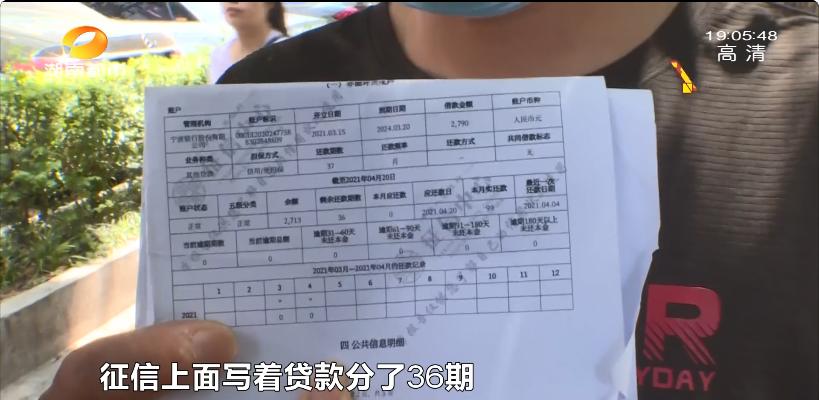 湖南都市
19:05:48
高清
账户
管理机构 账户标识 开立日期 到期日期 借款金额 账户币种
宁波银行股份有限公司 2021.03.15 2024.03.20 2,790 人民币元
业务种类 担保方式 还款期数 还款频率 还款方式 共同借款标志
其他贷款 信用/免担保 37 月 -- 无
截至2021年04月20日
账户状态 五级分类 余额 剩余还款期数 本月应还款 应还款日 本月实还款 最近一次还款日期
正常 正常 2,713 36 0 2021.04.20 99 2021.04.04
当前逾期期数 当前逾期总额 逾期31—60天未还本金 逾期61—90天未还本金 逾期91—180天未还本金 逾期180天以上未还本金
0 0 0 0 0 0
2021年03月—2021年04月的还款记录
1 2 3 4 5 6 7 8 9 10 11 12
* *
2021 0 0
四 公共信息明细
R
YDAY
征信上面写着贷款分了36期